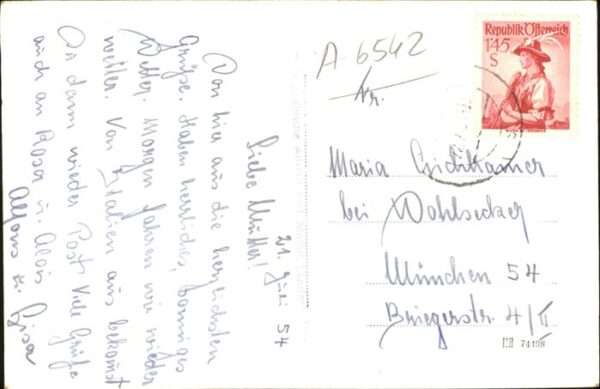 21. Juli 54
Liebe Mutter!
Von hier aus die herzlichsten
Grüße. Haben herrliches, sonniges
Wetter. Morgen fahren wir wieder
weiter. Von Italien aus bekommst
Du dann wieder Post. Viele Grüße
auch an Rosa u. Alois
Alfons u. Gisa
A 6542
Nr.
Republik Österreich
1'45
S
Maria
bei Wohlsecker
München 54
Briegerstr. 4/II